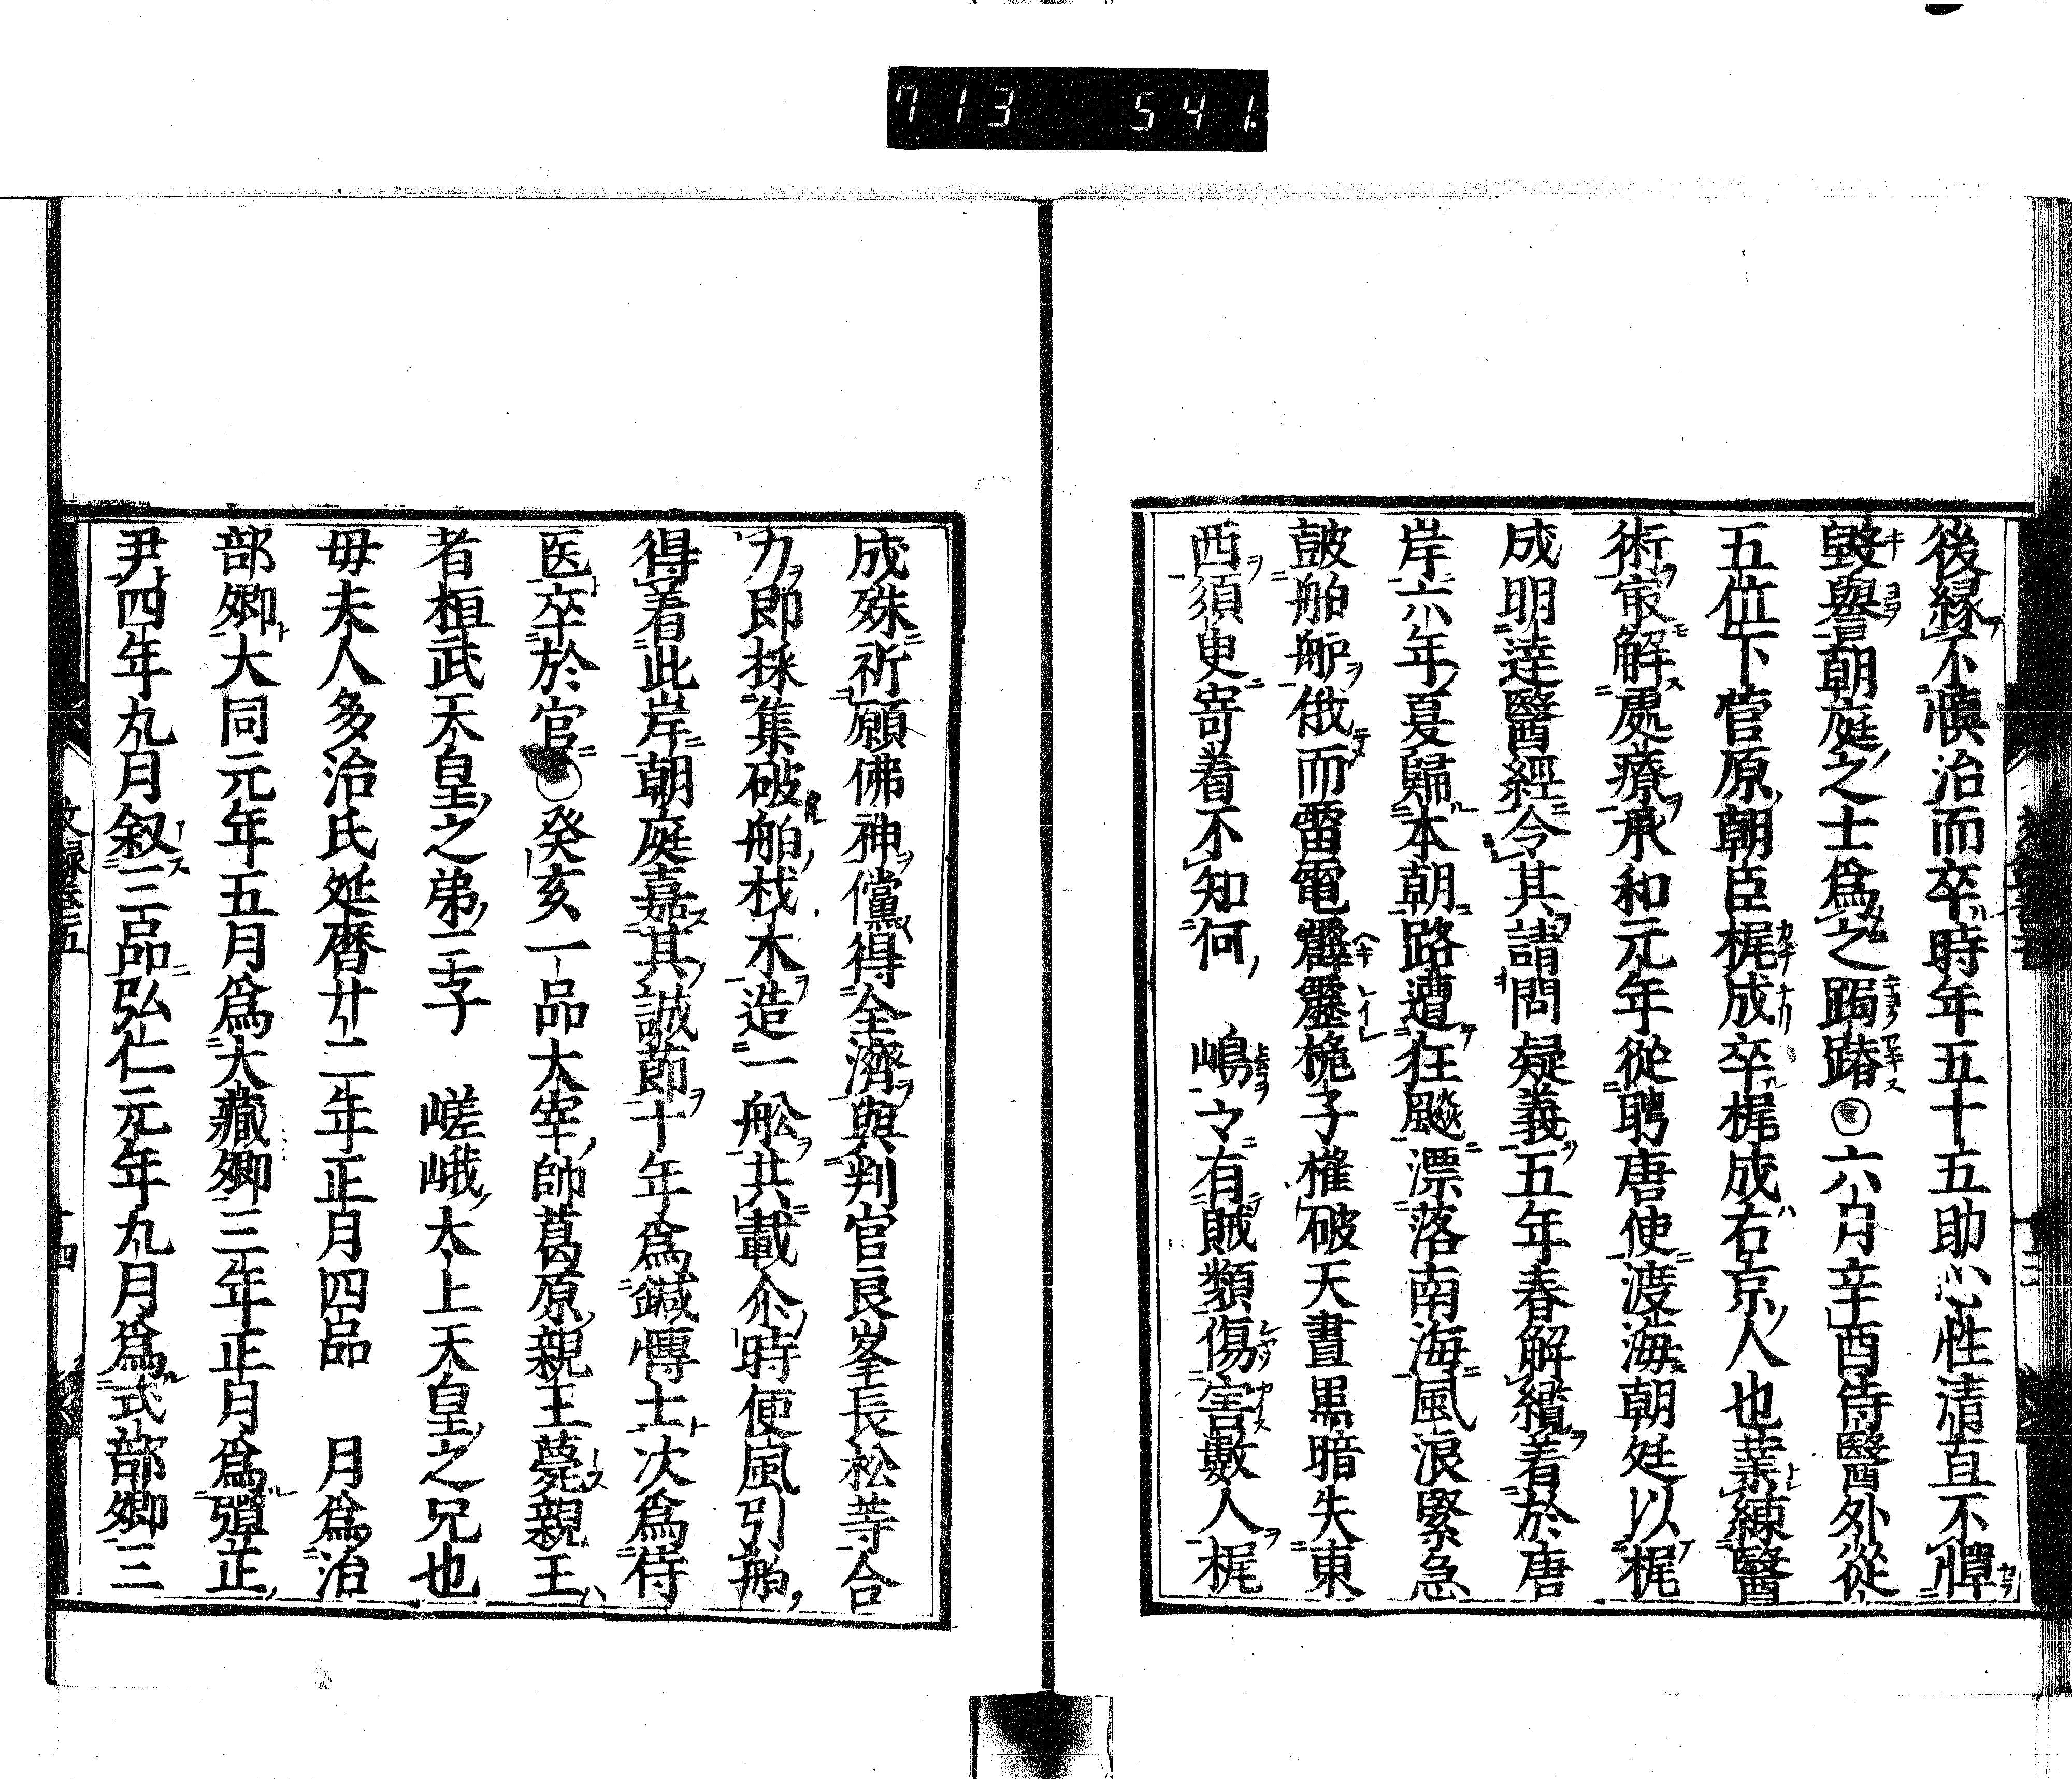 713 541
後縁不愼治而卒時年五十五助心性清直不憚
毀譽朝庭之士爲之跼蹐○六月辛酉侍醫外從
五位下菅原朝臣梶成卒梶成右京人也業練醫
術㝡解處療承和元年從聘唐使渡海朝廷以梶
成明達醫經令其請問疑義五年春解纜着於唐
岸六年夏歸本朝路遭狂飈漂落南海風浪緊急
皷舶舻俄而雷電霹靂桅子摧破天晝黒暗失東
西須臾寄着不知何 嶋々有賊類傷害數人梶
成殊祈願佛神儻得全濟與判官良岑長松等合
力即採集破舶材木造一舩共載尒時便風引舶
得着此岸朝庭嘉其誠節十年爲鍼博士次爲侍
医卒於官○癸亥一品大宰帥葛原親王薨親王
者桓武天皇之弟三子 嵯峨太上天皇之兄也
母夫人多治氏延暦廿二年正月四品 月爲治
部卿大同元年五月爲大藏卿三年正月爲彈正
尹四年九月叙三品弘仁元年九月爲式部卿三
文録巻五
十四